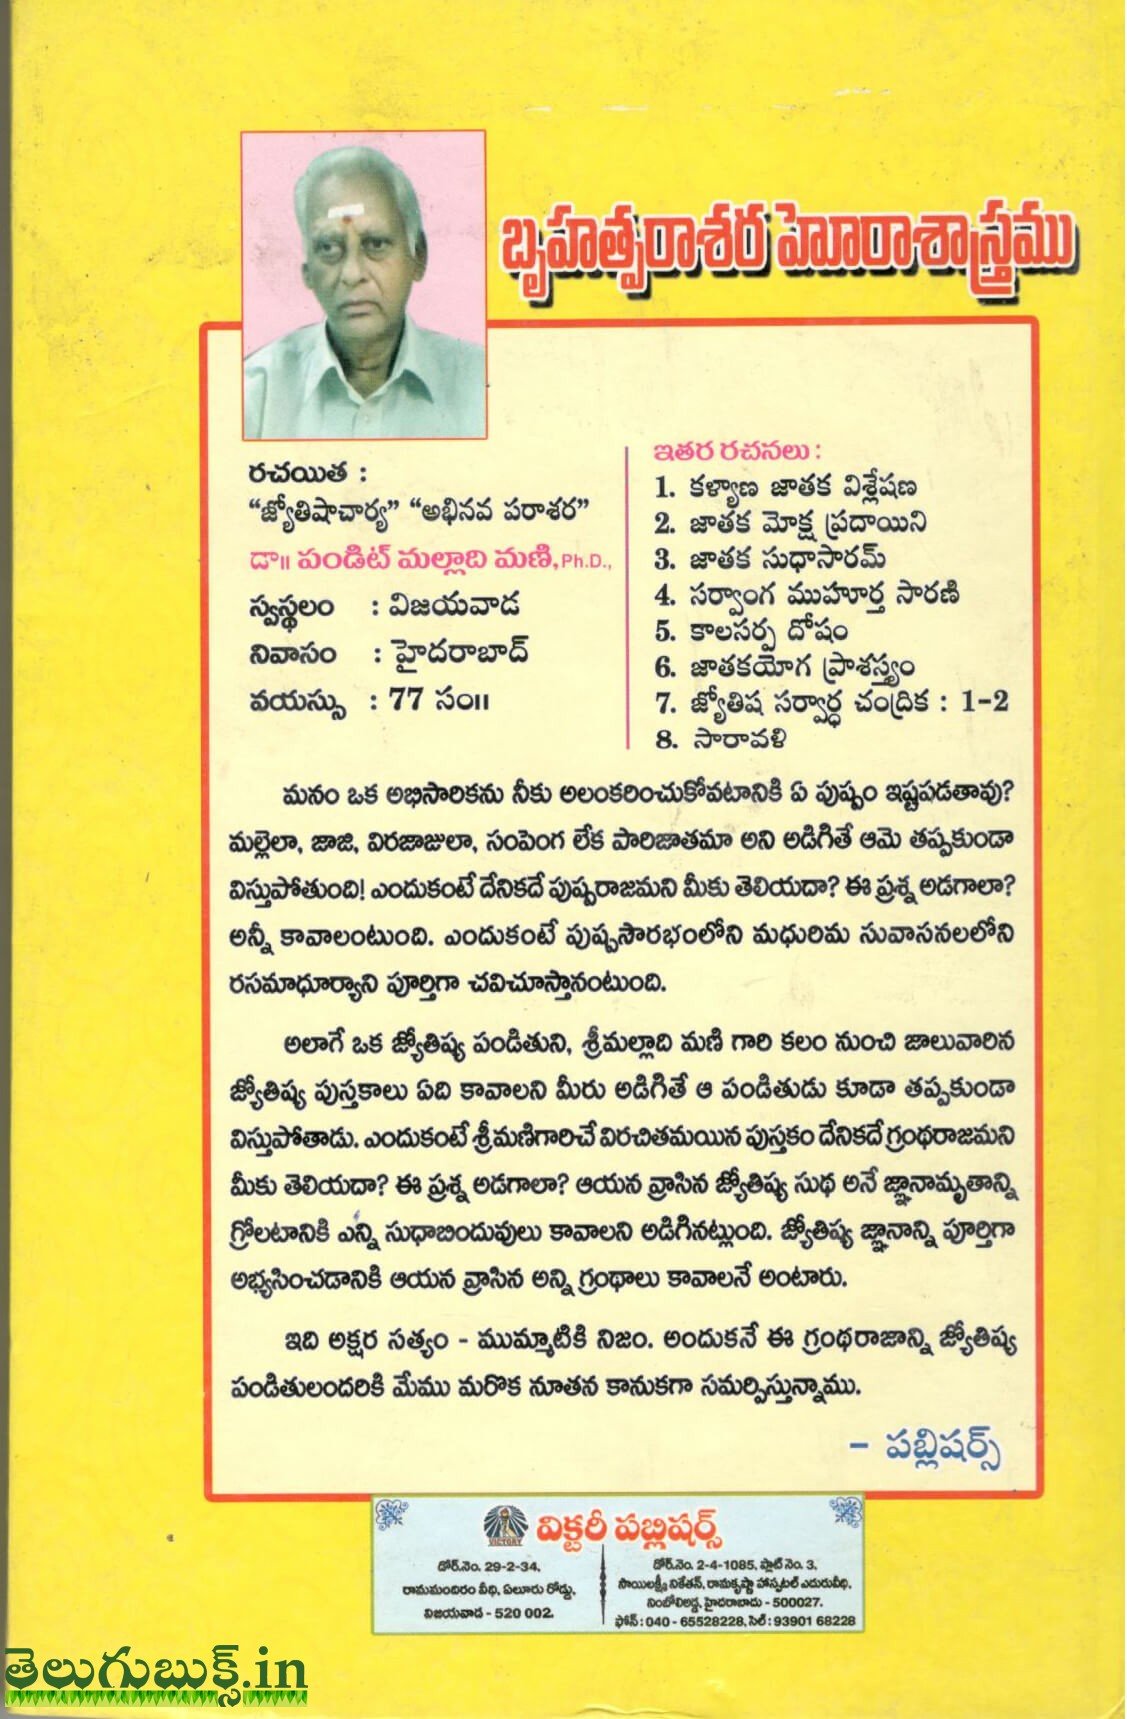 బృహత్పరాశర హోరాశాస్త్రము
రచయిత :
“జ్యోతిషాచార్య” “అభినవ పరాశర”
డా॥ పండిట్ మల్లాది మణి, Ph.D.,
స్వస్థలం : విజయవాడ
నివాసం : హైదరాబాద్
వయస్సు : 77 సం॥
ఇతర రచనలు :
1. కళ్యాణ జాతక విశ్లేషణ
2. జాతక మోక్ష ప్రదాయిని
3. జాతక సుధాసారమ్
4. సర్వాంగ ముహూర్త సారణి
5. కాలసర్ప దోషం
6. జాతకయోగ ప్రాశస్త్యం
7. జ్యోతిష సర్వార్ధ చంద్రిక : 1-2
8. సారావళి
మనం ఒక అభిసారికను నీకు అలంకరించుకోవటానికి ఏ పుష్పం ఇష్టపడతావు?
మల్లెలా, జాజి, విరజాజులా, సంపెంగ లేక పారిజాతమా అని అడిగితే ఆమె తప్పకుండా
విస్తుపోతుంది! ఎందుకంటే దేనికదే పుష్పరాజమని మీకు తెలియదా? ఈ ప్రశ్న అడగాలా?
అన్నీ కావాలంటుంది. ఎందుకంటే పుష్పసౌరభంలోని మధురిమ సువాసనలలోని
రసమాధూర్యాని పూర్తిగా చవిచూస్తానంటుంది.
అలాగే ఒక జ్యోతిష్య పండితుని, శ్రీమల్లాది మణి గారి కలం నుంచి జాలువారిన
జ్యోతిష్య పుస్తకాలు ఏది కావాలని మీరు అడిగితే ఆ పండితుడు కూడా తప్పకుండా
విస్తుపోతాడు. ఎందుకంటే శ్రీమణిగారిచే విరచితమయిన పుస్తకం దేనికదే గ్రంథరాజమని
మీకు తెలియదా? ఈ ప్రశ్న అడగాలా? ఆయన వ్రాసిన జ్యోతిష్య సుధ అనే జ్ఞానామృతాన్ని
గ్రోలటానికి ఎన్ని సుధాబిందువులు కావాలని అడిగినట్లుంది. జ్యోతిష్య జ్ఞానాన్ని పూర్తిగా
అభ్యసించడానికి ఆయన వ్రాసిన అన్ని గ్రంథాలు కావాలనే అంటారు.
ఇది అక్షర సత్యం - ముమ్మాటికి నిజం. అందుకనే ఈ గ్రంథరాజాన్ని జ్యోతిష్య
పండితులందరికి మేము మరొక నూతన కానుకగా సమర్పిస్తున్నాము.
- పబ్లిషర్స్
VICTORY
విక్టరీ పబ్లిషర్స్
డోర్.నెం. 29-2-34,
రామమందిరం వీధి, ఏలూరు రోడ్డు,
విజయవాడ - 520 002.
డోర్.నెం. 2-4-1085, ప్లాట్ నెం. 3,
సాయిలక్ష్మీ నికేతన్, రామకృష్ణా హాస్పటల్ ఎదురువీధి,
నింబోలిఅడ్డ, హైదరాబాదు - 500027.
ఫోన్ : 040 - 65528228, సెల్ : 93901 68228
తెలుగుబుక్స్.in